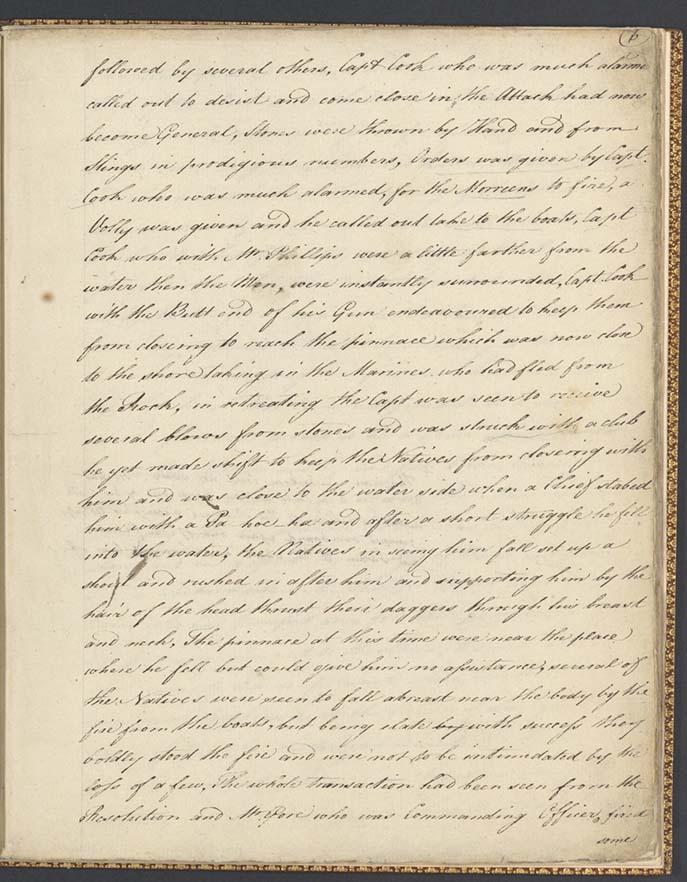 6
followed by several others, Capt Cook who was much alarm
called out to desist and come close in, the Attack had now
become General, Stones were thrown by Hand and from
Slings in prodigious numbers, Orders was given by Capt.
Cook who was much alarmed, for the Morreens to fire, a
Volly was given and he called out take to the boats, Capt
Cook who with Mr. Phillips were a little farther from the
water then the Men, were instantly surrounded, Capt. Cook
with the Butt end of his Gun endeavoured to keep them
from closeing to reach the pinnace which was now close
to the shore takeing in the Marines who had fled from
the Rock, in retreating the Capt was seen to receive
several blows from stones and was struck with a club
he yet made shift to keep the Natives from closeing with
him and was close to the water side when a Chief stabed
him with a Pa hoe ha and after a short struggle he fell
into the water, the Natives in seeing him fall set up a
shout and rushed in after him and supporting him by the
hair of the head thrust their daggers through his breast
and neck, The pinnace at this time were near the place
where he fell but could give him no assistance, several of
the Natives were seen to fall abreast near the body by the
fire from the boats, but being elate by with success they
boldly stood the fire and were not to be intimidated by the
loss of a few, The whole transaction had been seen from the
Resolution and Mr. Gore who was Commanding Officer, fired
some